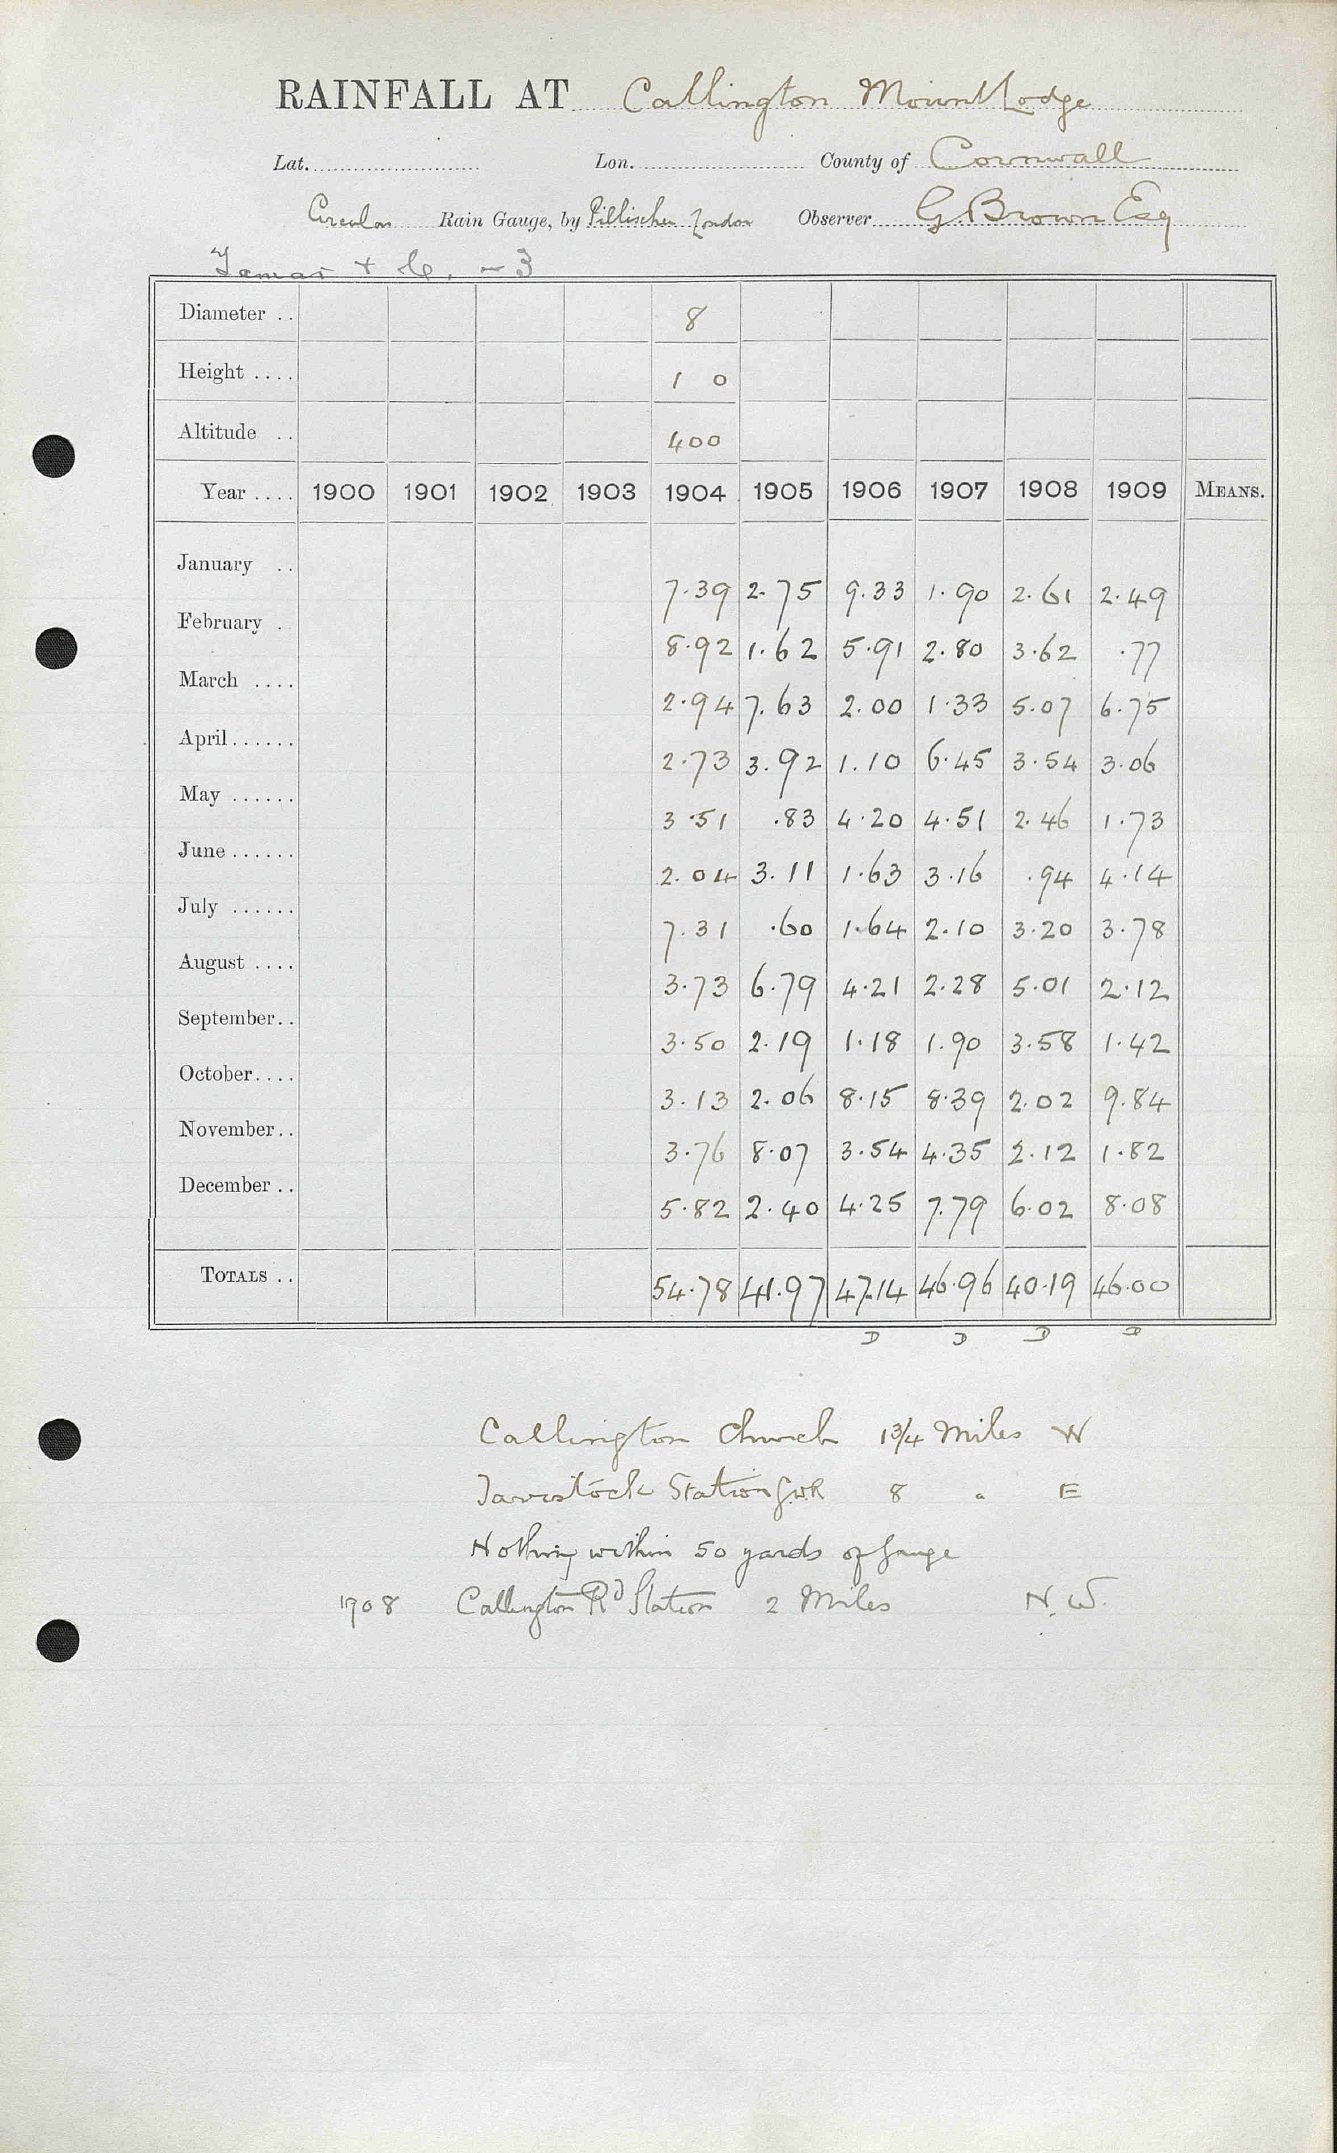 RAINFALL AT Callington Mount Lodge
Lat. Lon. County of Cornwall
Circular Rain Gauge, by Pillischer London Observer G. Brown Esq
Tamar + - 3
Diameter .. 8
Height .... 1 0
Altitude .. 400
Year .... 1900 1901 1902 1903 1904 1905 1906 1907 1908 1909 MEANS.
January .. 7.39 2.75 9.33 1.90 2.61 2.49
February . 8.92 1.62 5.91 2.80 3.62 .77
March .... 2.94 7.63 2.00 1.33 5.07 6.75
April...... 2.73 3.92 1.10 6.45 3.54 3.06
May ...... 3.51 .83 4.20 4.51 2.46 1.73
June...... 2.04 3.11 1.63 3.16 .94 4.14
July ...... 7.31 .60 1.64 2.10 3.20 3.78
August .... 3.73 6.79 4.21 2.28 5.01 2.12
September.. 3.50 2.19 1.18 1.90 3.58 1.42
October.... 3.13 2.06 8.15 8.39 2.02 9.84
November.. 3.76 8.07 3.54 4.35 2.12 1.82
December .. 5.82 2.40 4.25 7.79 6.02 8.08
TOTALS .. 54.78 41.97 47.14 46.96 40.19 46.00
D D D D
Callington Church 1 3/4 Miles W
Tavistock Station GWR 8 " E
Nothing within 50 yards of gauge
1908 Callington Rd Station 2 Miles N.W.